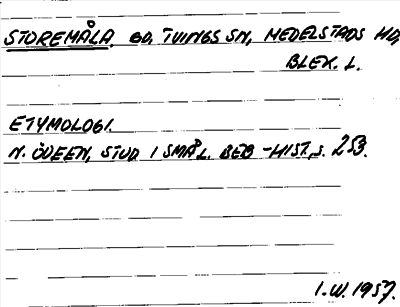 STOREMÅLA, GD, TVINGS SN, MEDELSTADS HD,
BLEK. L.
ETYMOLOGI.
N. ÖDEEN, STUD. I SMÅL. BEB-HIST, S. 253.
I.W. 1957.